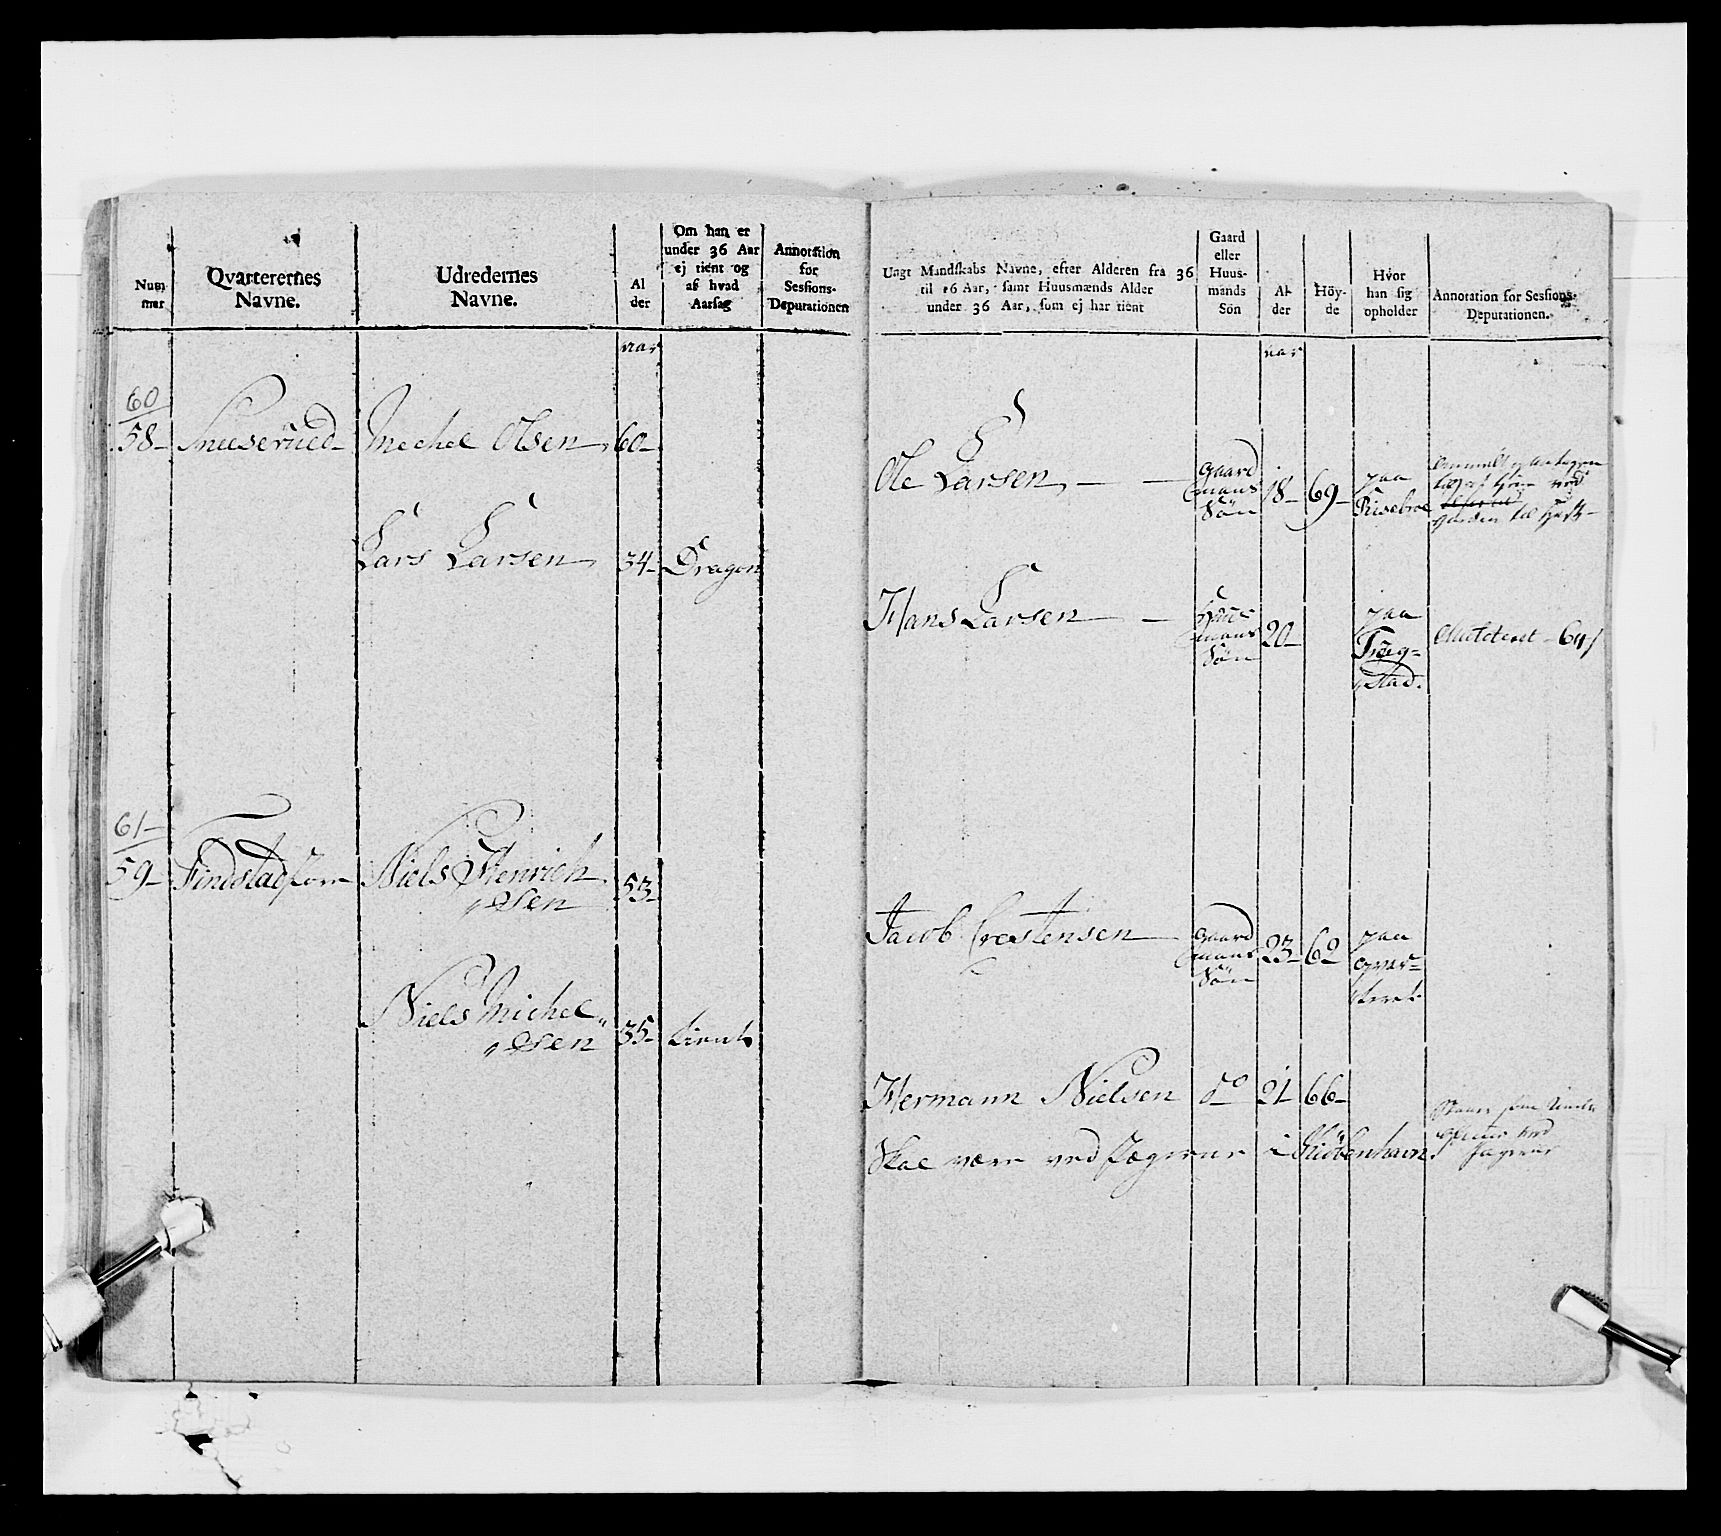 Num
mer
Qvarterernes
Navne.
Udredernes
Navne.
Al
der
Om han er
under 36 Aar
ej tient og
af hvad
Aarsag
Annotation
for
Sessions-
Deputationen
aar
60
58- Mechel Olsen, 60-
Lars Larsen, 34- Dragon
61-
59- Niels Henrich
sen 53-
Niels Michel
sen 35- tient
Ungt Mandskabs Navne, efter Alderen fra 36
til 16 Aar, samt Huusmænds Alder
under 36 Aar, som ej har tient
Gaard
eller
Huus-
mands
Sön
Al-
der
Höy-
de
Hvor
han sig
opholder
Annotation for Sessions-
Deputationen.
aar
Ole Larsen,
gaard
mans
Sön
18- 69-
paa
Risebroe
Hans Larsen
Huus
mans
Sön
20-
paa
Trøg-
stad.
64
Jacob Crestensen
gaard
mans
Sön
23- 62
paa
qvar-
teret.
Hermann Nielsen do 21 66-
Skal være ved Jægerne i Kiöbenhavn.
ved
Jægerne